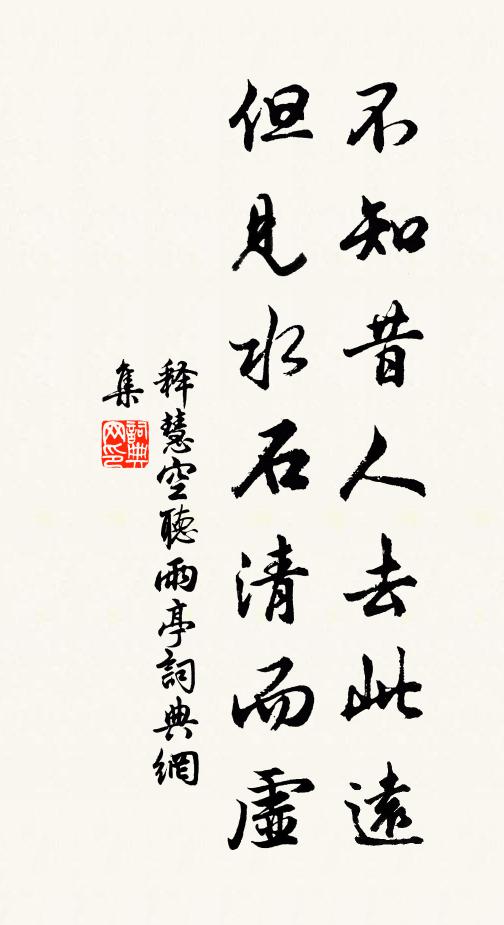 不知昔人去此遠
但見水石清而虛
释慧空聽雨亭詞典網
集
詞典
网印